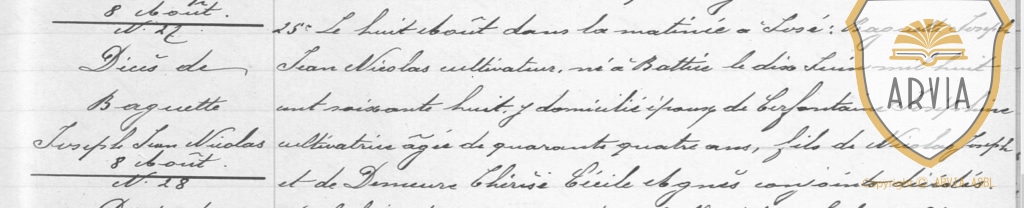 8 Août.
N. 27
Décès de
Baguette
Joseph Jean Nicolas
8 Août.
N. 28
25° Le huit Août dans la matinée a José: Baguette Joseph
Jean Nicolas cultivateur, né à Battice le dix Juin mil huit
cent soixante huit, y domicilié époux de Cerfontaine Joséphine
cultivatrice âgée de quarante quatre ans, fils de Nicolas Joseph
et de Demeure Thérèse Cécile Agnès conjoints décédés.
ARVIA
Copyright © ARVIA ASBL